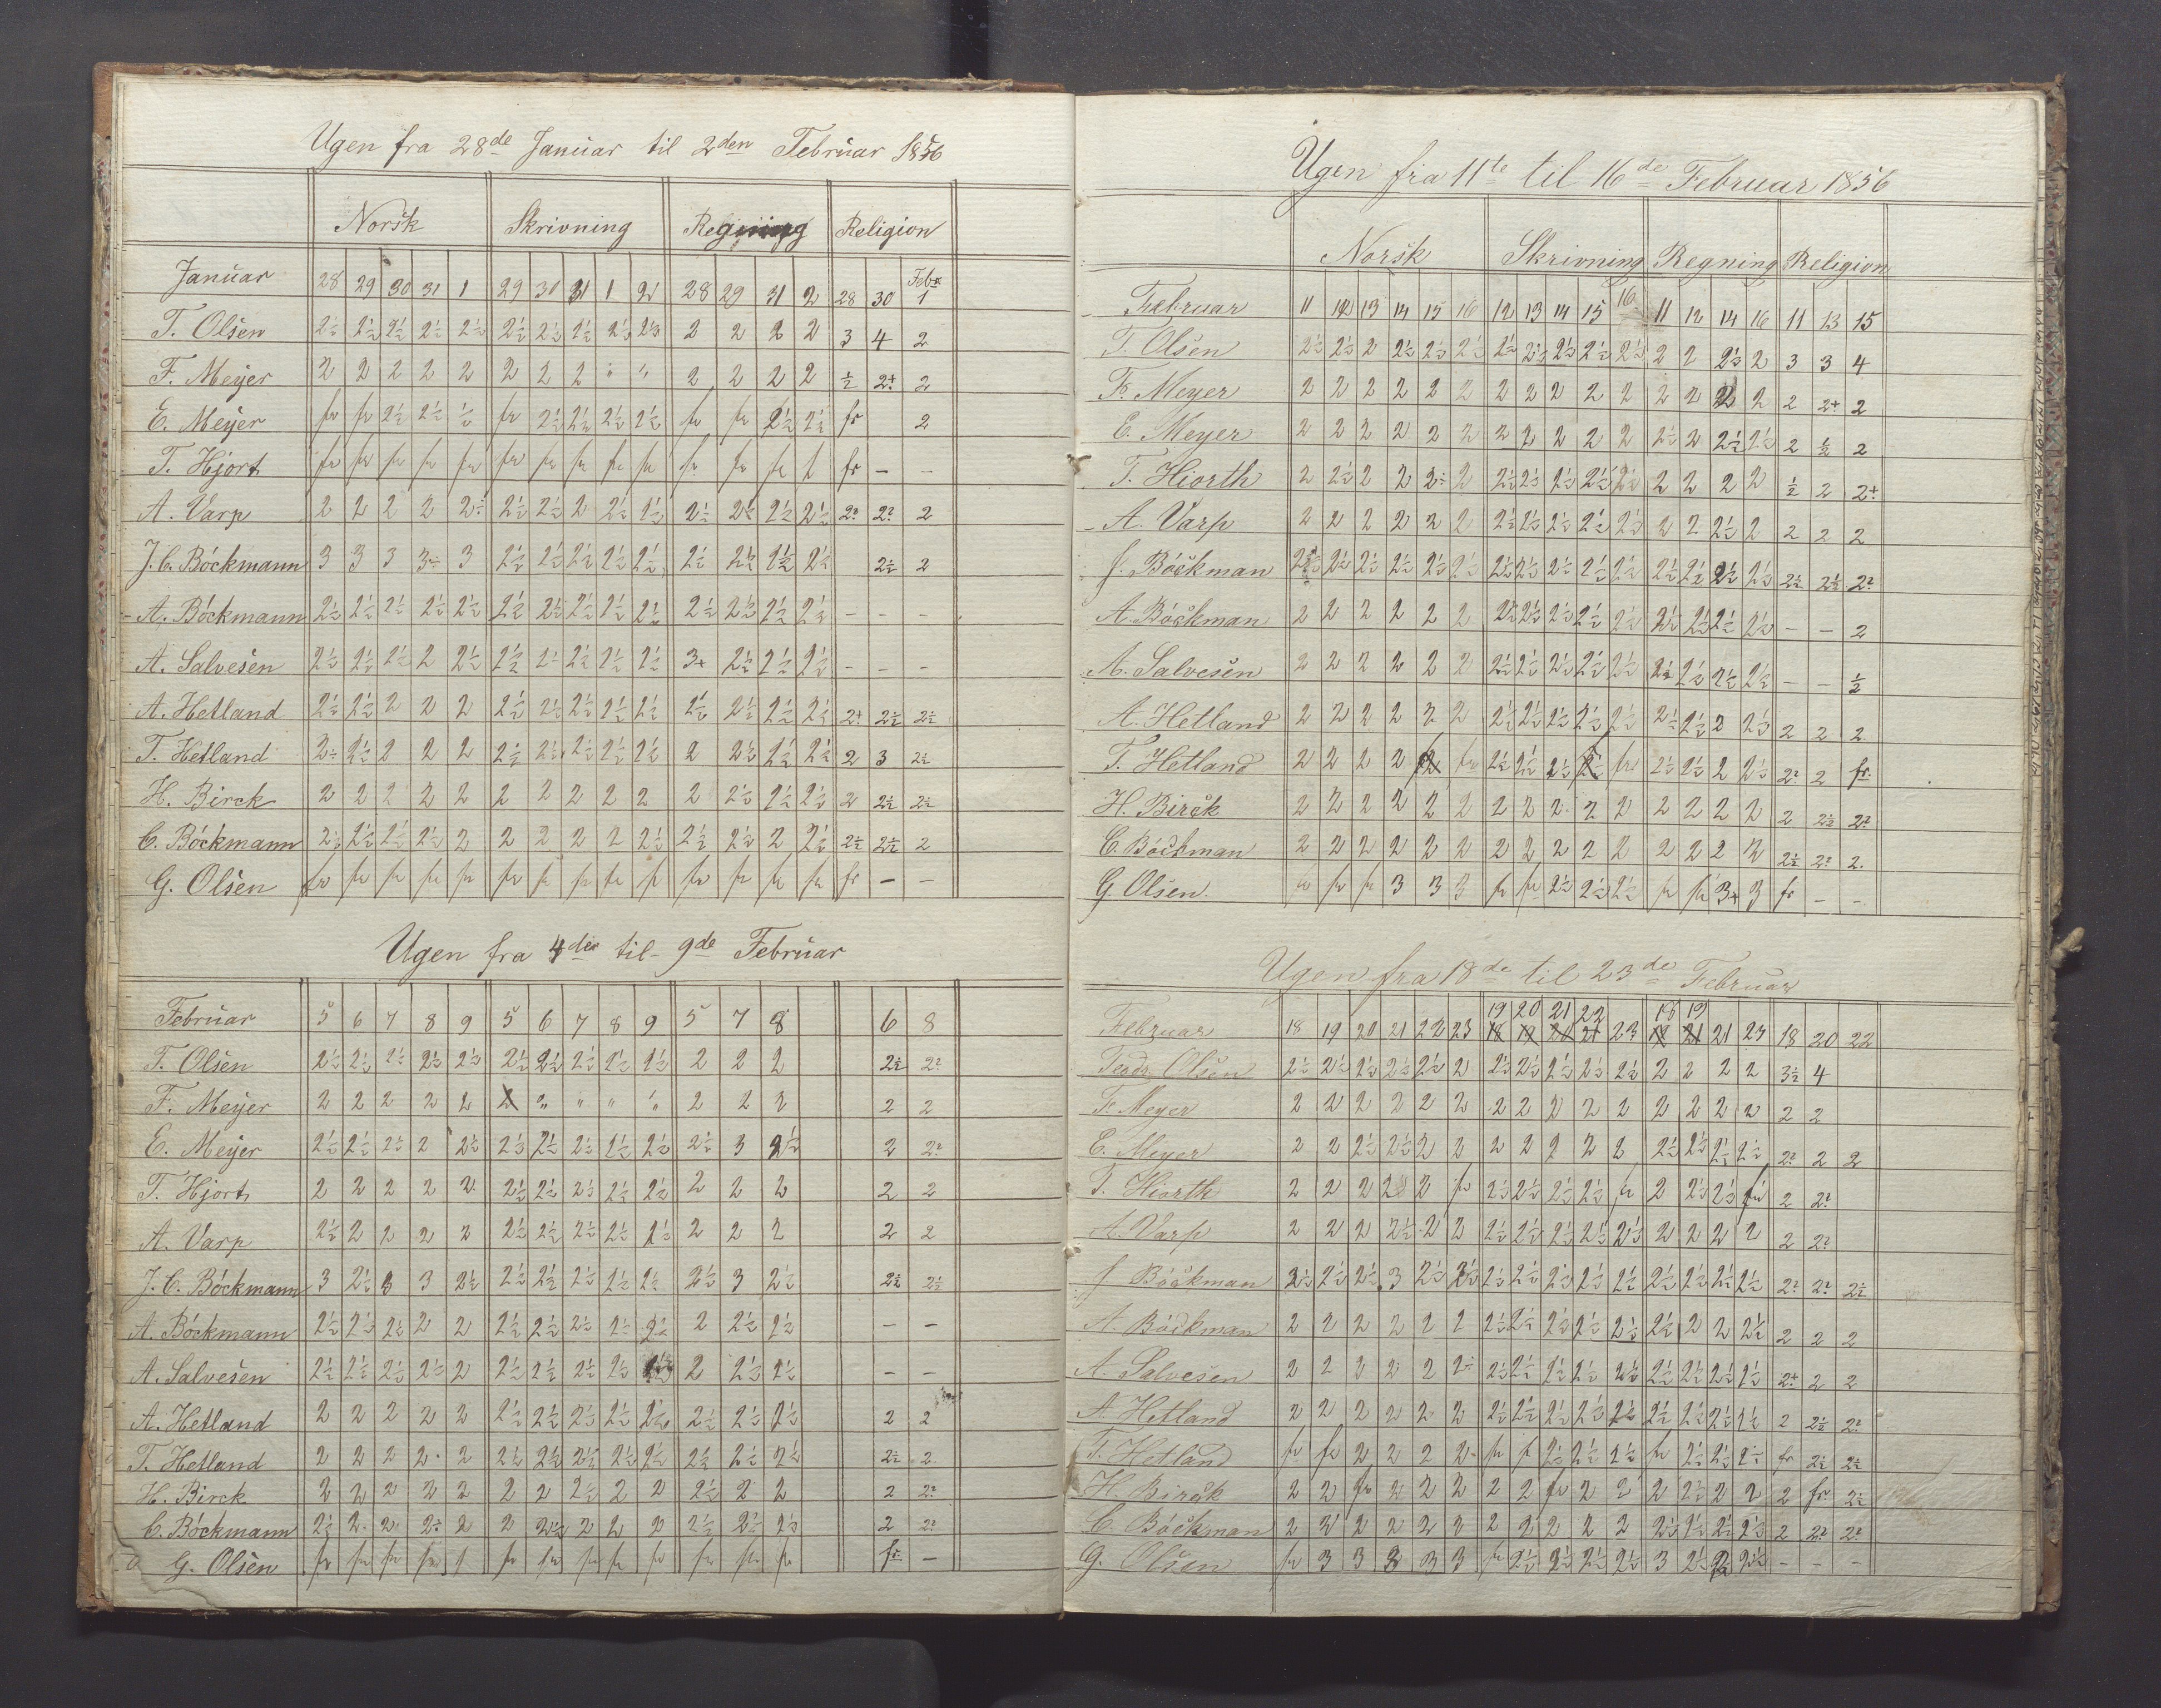 Ugen fra 28de Januar til 2den Februar 1856
Norsk Skrivning Regning Religion
Januar 28 29 30 31 1 29 30 31 1 2 28 29 31 2 28 30 Febr 1
T. Olsen 2½ 2½ 2½ 2½ 2½ 2½ 2½ 2½ 2½ 2½ 2 2 2 2 3 4 2
F. Meyer 2 2 2 2 2 2 2 2 " " 2 2 2 2 ½ 2+ 2
E. Meyer fr fr 2½ 2½ ½ fr 2½ 2½ 2½ 2½ fr fr 2½ 2½ fr 2
T. Hjort fr fr fr fr fr fr fr fr fr fr fr fr fr fr – –
A. Varp 2 2 2 2 2 2½ 2½ 2 2½ 2½ 2½ 2½ 2½ 2½ 2? 2? 2
J. C. Böckmann 3 3 3 3 3 2½ 2½ 2½ 2½ 2½ 2½ 2½ 2½ 2½ 2½ 2
A. Böckmann 2½ 2½ 2½ 2½ 2½ 2½ 2½ 2½ 2½ 2½ 2½ 2½ 2½ 2½ – – –
A. Salvesen 2½ 2½ 2½ 2 2½ 2½ 2½ 2½ 2½ 2½ 3+ 2½ 2½ 2½ – – –
A. Hetland 2½ 2½ 2 2 2 2½ 2½ 2½ 2½ 2½ 2½ 2½ 2½ 2½ 2+ 2½ 2½
T. Hetland 2 2½ 2 2 2 2½ 2½ 2½ 2½ 2½ 2 2½ 2½ 2½ 2 3 2½
H. Birck 2 2 2 2 2 2 2 2 2 2 2 2½ 2½ 2½ 2 2½ 2½
C. Böckmann 2½ 2½ 2½ 2½ 2 2 2 2 2 2½ 2½ 2½ 2 2½ 2½ 2½ 2
G. Olsen fr fr fr fr fr fr fr fr fr fr fr fr fr fr fr – –
Ugen fra 4de til 9de Februar
Februar 5 6 7 8 9 5 6 7 8 9 5 7 8 6 8
T. Olsen 2½ 2½ 2½ 2½ 2½ 2½ 2½ 2½ 2½ 2½ 2 2 2 2½ 2?
F. Meyer 2 2 2 2 2 " " " " 2 2 2 2 2
E. Meyer 2½ 2½ 2½ 2 2½ 2½ 2½ 2½ 2½ 2½ 2½ 3 2½ 2 2?
T. Hjort 2 2 2 2 2 2½ 2½ 2½ 2½ 2½ 2 2 2 2 2
A. Varp 2½ 2 2 2 2 2½ 2½ 2½ 2½ 2½ 2 2 2 2 2
J. C. Böckmann 3 2½ 3 3 2½ 2½ 2½ 2½ 2½ 2½ 2½ 3 2½ 2½ 2½
A. Böckmann 2½ 2½ 2½ 2 2 2½ 2½ 2½ 2½ 2½ 2 2½ 2½ – –
A. Salvesen 2½ 2½ 2½ 2½ 2 2½ 2½ 2½ 2½ 2 2½ 2½ – –
A. Hetland 2 2 2 2 2 2½ 2½ 2½ 2½ 2½ 2½ 2½ 2½ 2 2
T. Hetland 2 2 2 2 2 2½ 2½ 2½ 2½ 2½ 2½ 2½ 2½ 2½ 2
H. Birck 2 2 2 2 2 2 2 2½ 2 2 2½ 2 2 2 2?
C. Böckmann 2½ 2 2 2 2 2 2½ 2 2 2 2½ 2½ 2½ 2 2?
G. Olsen fr fr fr fr fr fr fr fr fr fr fr fr fr –
Ugen fra 11te til 16de Februar 1856
Norsk Skrivning Regning Religion
Februar 11 12 13 14 15 16 12 13 14 15 16 11 12 14 16 11 13 15
T. Olsen 2½ 2½ 2 2½ 2½ 2½ 2½ 2½ 2½ 2½ 2½ 2 2 2½ 2 3 3 4
Fr. Meyer 2 2 2 2 2 2 2 2 2 2 2 2 2 2 2 2 2+ 2
E. Meyer 2 2 2 2 2 2 2 2 2 2 2 2½ 2 2½ 2½ 2 ½ 2
T. Hiorth 2 2½ 2 2 2 2 2½ 2½ 2½ 2½ 2½ 2 2 2 2 ½ 2 2+
A. Varp 2 2 2 2 2 2 2½ 2½ 2½ 2½ 2½ 2 2 2½ 2 2 2 2
J. Böckman 2½ 2½ 2½ 2½ 2½ 2½ 2½ 2½ 2½ 2½ 2½ 2½ 2½ 2½ 2½ 2½ 2½ 2?
A. Böckman 2 2 2 2 2 2 2½ 2½ 2½ 2½ 2½ 2½ 2½ 2½ 2½ – – 2
A. Salvesen 2 2 2 2 2 2 2½ 2½ 2½ 2½ 2½ 2½ 2½ 2½ 2½ – – ½
A. Hetland 2 2 2 2 2 2 2½ 2½ 2½ 2½ 2½ 2½ 2½ 2 2½ 2 2 2
T. Hetland 2 2 2 2 fr fr 2½ 2½ 2½ fr 2½ 2½ 2 2½ 2? 2 fr
H. Birck 2 2 2 2 2 2 2 2 2 2 2 2 2 2 2 2 2½ 2?
C. Böckman 2 2 2 2 2 2 2 2 2 2 2 2 2 2 2 2½ 2? 2
G. Olsen. fr fr fr 3 3 3 fr fr 2½ 2½ 2½ fr fr 3+ 3 fr – –
Ugen fra 18de til 23de Februar
19 20 21 22 18 19
Februar 18 19 20 21 22 23 18 19 20 21 23 19 21 21 23 18 20 22
Teodr Olsen 2½ 2½ 2½ 2½ 2½ 2 2½ 2½ 2½ 2½ 2½ 2 2 2 2 3½ 4
F. Meyer 2 2 2 2 2 2 2 2 2 2 2 2 2 2 2 2 2
E. Meyer 2 2 2½ 2½ 2 2 2 2 2 2 2 2½ 2½ 2½ 2½ 2? 2 2
T. Hiorth 2 2 2 2 2 fr 2½ 2½ 2½ 2½ fr 2 2½ 2½ fr 2 2?
A. Varp 2 2 2 2½ 2 2 2½ 2½ 2½ 2½ 2½ 2 2 2 2 2 2?
J Böckman 2½ 2½ 2½ 3 2½ 2½ 2½ 2½ 2½ 2½ 2½ 2½ 2½ 2½ 2½ 2? 2? 2½
A. Böckman 2 2 2 2 2 2 2½ 2½ 2½ 2½ 2½ 2½ 2 2 2½ 2 2 2
A. Salvesen 2 2 2 2 2 2 2½ 2½ 2½ 2½ 2½ 2½ 2½ 2½ 2½ 2+ 2 2
A. Hetland 2 2 2 2 2 2 2½ 2½ 2½ 2½ 2½ 2½ 2½ 2½ 2½ 2 2½ 2?
T. Hetland fr fr 2 2 2 2 fr fr 2½ 2½ 2½ fr 2½ 2½ 2½ fr 2½ 2½
H. Birck 2 2 fr 2 2 2 2 2 fr 2 2 2 2½ 2 2 2 fr 2½
C. Böckman 2 2 2 2 2 2 2 2 2 2 2 2½ 2½ 2½ 2½ 2 2? 2?
G. Olsen fr 3 3 3 3 3 fr 2½ 2½ 2½ 2½ 3 2½ 2½ 2½ – – –